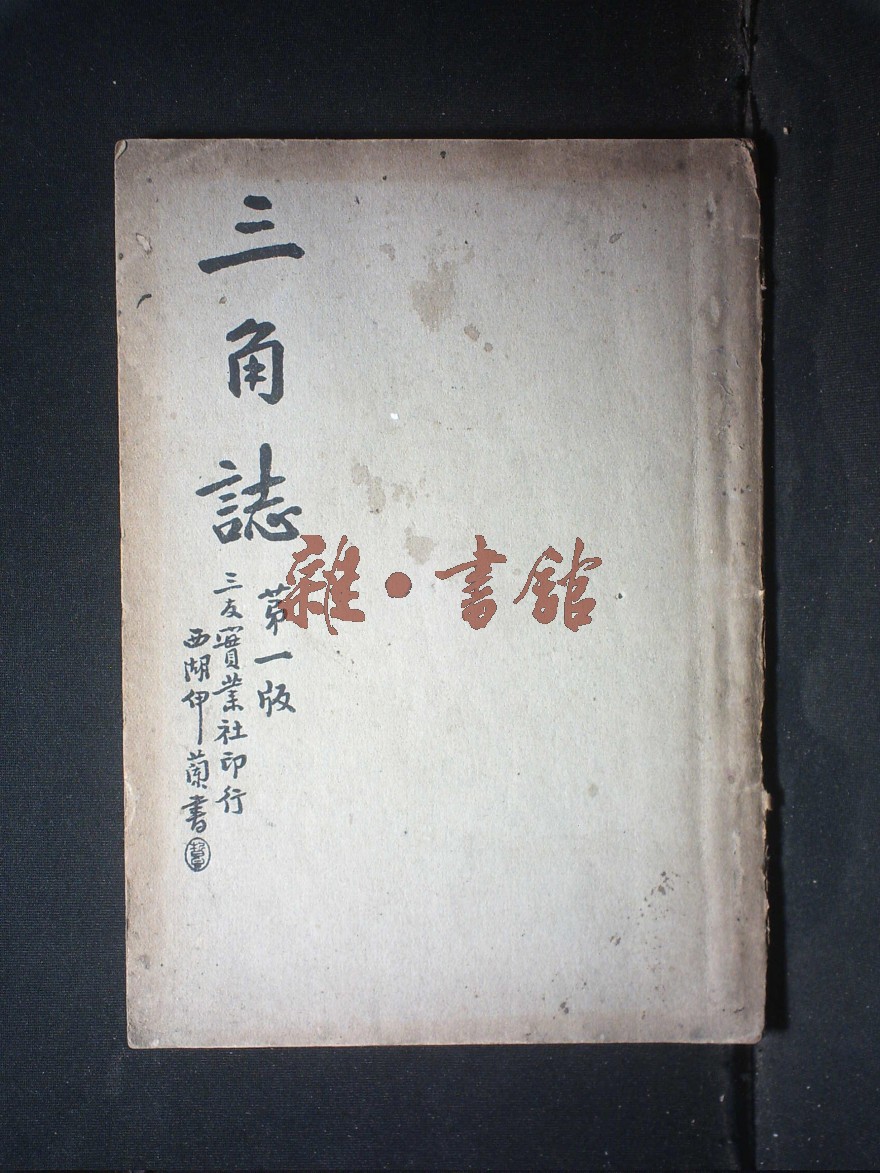 三角誌
第一版
三友實業社印行
西湖伊蘭書
雜·書館